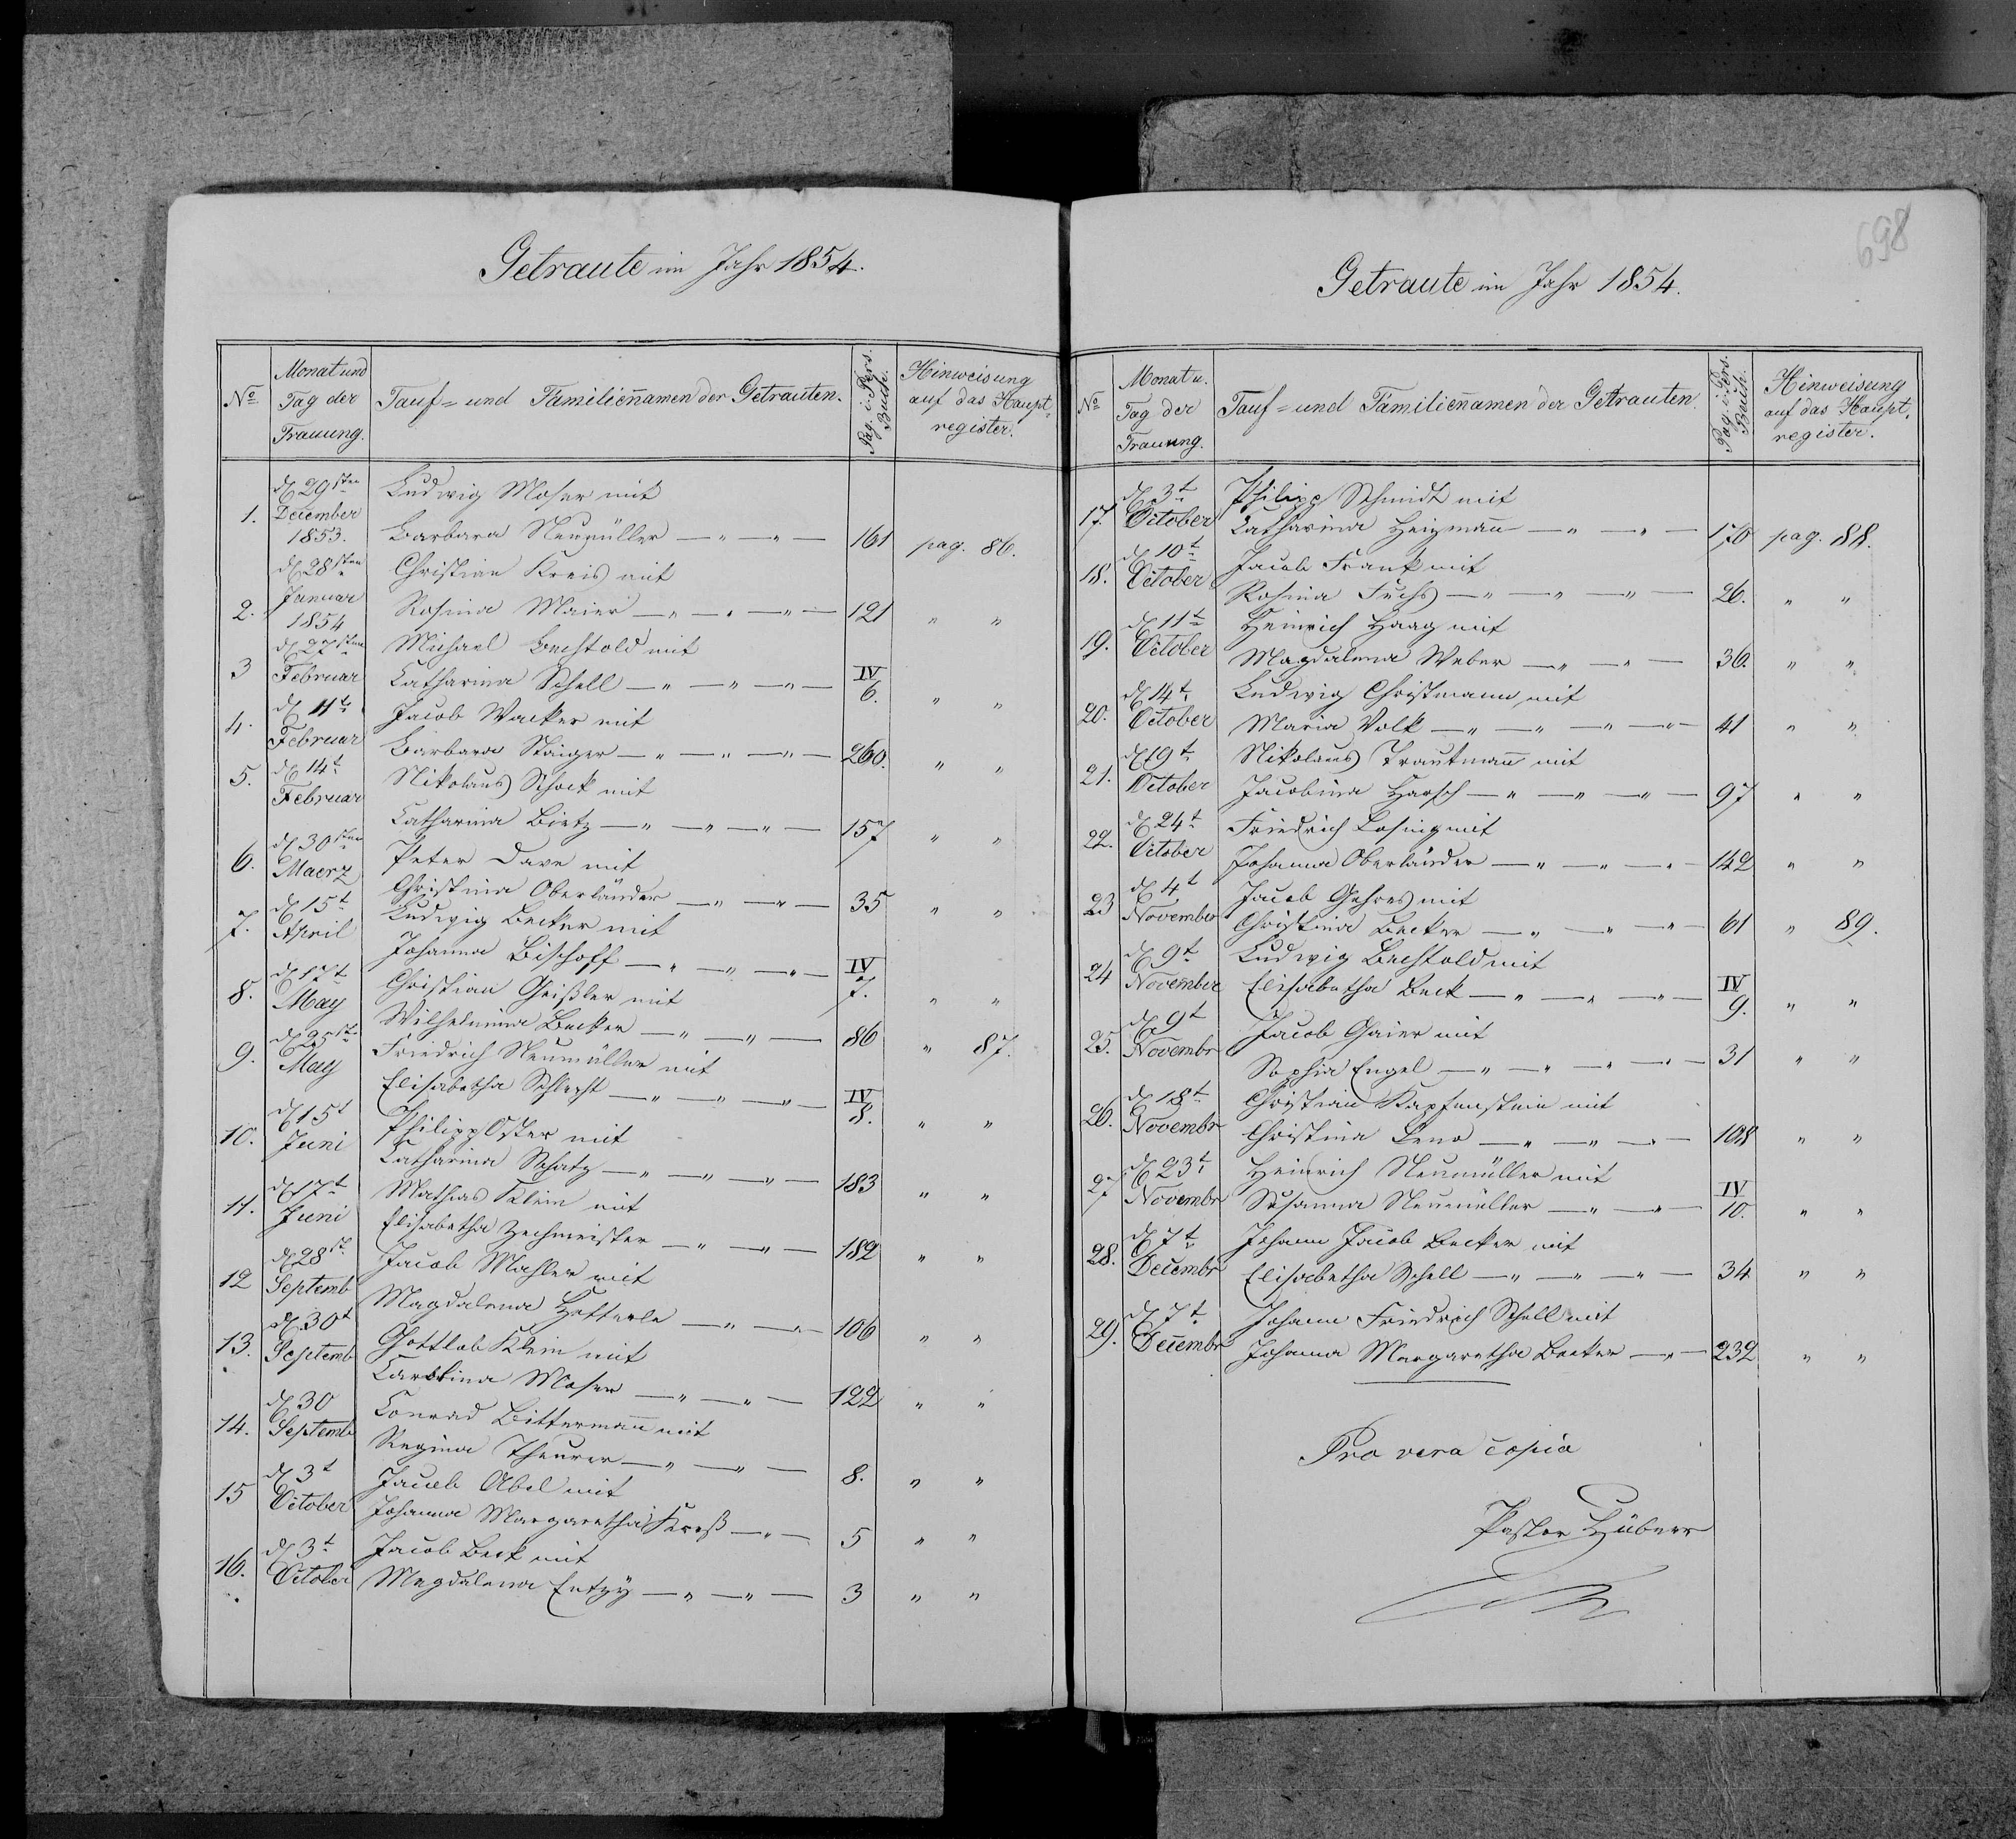 Getraute im Jahr 1854.
No. Monat und Tag der Trauung. Tauf- und Familien̄namen der Getrauten. Pag. i. Pers. Buch. Hinweisung auf das Haupt-register.
1. d. 29sten December 1853. Ludwig Moser mit
Barbara Neumüller — " — " — 161 pag. 86.
2. d. 28sten Januar 1854 Christian Kreis mit
Rosina Maier — " — " — " — 121 " "
3 d. 27sten Februar Michael Bechtold mit
Catharina Schell — " — " — " — IV 6. " "
4. d. 11t Februar Jacob Wacker mit
Barbara Staiger — " — " — " — 260. " "
5. d. 14t Februar Nikolaus Schock mit
Catharina Bietz — " — " — " — 157 " "
6. d. 30sten Maerz Peter Dave mit
Christina Oberländer — " — " — 35 " "
7. d. 15t April Ludwig Becker mit
Johanna Bischoff — " — " — " — IV 7. " "
8. d. 17t May Christian Geißler mit
Wilhelmina Becker — " — " — 86 " 87.
9. d. 25st May Friedrich Neumüller mit
Elisabetha Schlecht — " — " — " — IV 8. " "
10. d. 15t Juni Philipp Oster mit
Catharina Schatz — " — " — " — 183 " "
11. d. 17t Juni Mathias Klein mit
Elisabetha Zechmeister — " — " — 182 " "
12 d. 28st Septemb Jacob Mahler mit
Magdalena Hetterle — " — " — 106 " "
13. d. 30t Septemb Gottlob Klein mit
Carolina Moser — " — " — 122 " "
14. d. 30 Septemb Conrad Bittermann mit
Regina Theurer — " — " — 8. " "
15 d. 3t October Jacob Abel mit
Johanna Margaretha Kreß — " — 5 " "
16. d. 3t October Jacob Beck mit
Magdalena Entzy — " — " — 3 " "
698
Getraute im Jahr 1854.
No. Monat u. Tag der Trauung. Tauf- und Familien̄namen der Getrauten. Pag. i. Pers. Buch. Hinweisung auf das Haupt-register.
17. d. 3t October Philipp Schmidt mit
Catharina Heizman̄ — " — " — 170 pag. 88.
18. d. 10t October Jacob Frank mit
Rosina Fuchs — " — " — " — 26. " "
19. d. 11t October Heinrich Haag mit
Magdalena Weber — " — " — 36. " "
20. d. 14t October Ludwig Christmann mit
Maria Volk — " — " — " — " — 41 " "
21. d. 19t October Nikolaus Trautman̄ mit
Jacobina Harsch — " — " — " — 97 " "
22. d. 24t October Friedrich Losing mit
Johanna Oberländer — " — " — " — 142 " "
23 d. 4t November Jacob Gehres mit
Christina Becker — " — " — " — 61 " 89.
24 d. 9t November Ludwig Bechtold mit
Elisabetha Beck — " — " — " — IV 9. " "
25. d. 9t Novembr Jacob Gaier mit
Sophia Engel — " — " — " — " — 31 " "
26. d. 18t Novembr Christian Kapfenstein mit
Christina Leno — " — " — " — 108 " "
27 d. 23t Novembr Heinrich Neumüller mit
Susanna Neumüller — " — " — IV 10. " "
28. d. 7t Decembr Johann Jacob Becker mit
Elisabetha Schell — " — " — " — 34 " "
29. d. 7t Decembr Johann Friedrich Schell mit
Johanna Margaretha Becker — " — 232 " "
Pro vera copia
Pastor Hübner